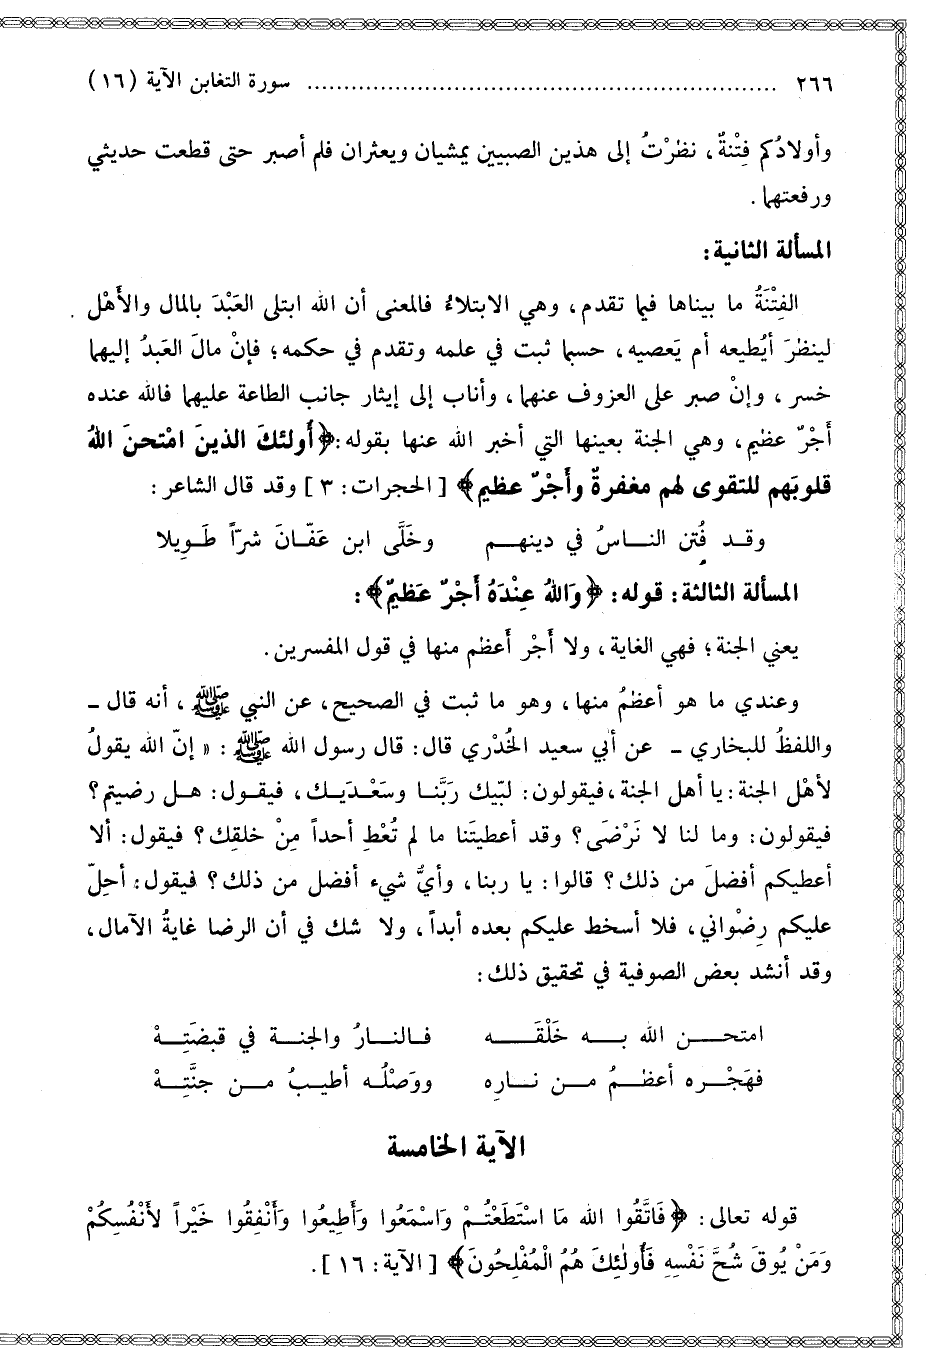 ٢٦٦ ............................................................... سورة التغابن الآية (١٦)
وأولادُكم فِتْنةٌ، نظرْتُ إلى هذين الصبيين يمشيان ويعثران فلم أصبر حتى قطعت حديثي
ورفعتهما.
المسألة الثانية:
الفِتْنَةُ ما بيناها فيما تقدم، وهي الابتلاءُ فالمعنى أن الله ابتلى العَبْدَ بالمال والأَهْل
لينظرَ أيُطيعه أم يَعصيه، حسبما ثبت في علمه وتقدم في حكمه؛ فإنْ مالَ العَبدُ إليهما
خسر، وإنْ صبر على العزوف عنهما، وأناب إلى إيثار جانب الطاعة عليهما فالله عنده
أَجْرٌ عظيم، وهي الجنة بعينها التي أخبر الله عنها بقوله: ﴿أولئكَ الذينَ امْتحنَ اللهُ
قلوبَهم للتقوى لهم مغفرةٌ وأَجْرٌ عظيم﴾ [الحجرات: ٣] وقد قال الشاعر:
وقد فُتن الناسُ في دينهم وخَلَّى ابن عَفّانَ شرّاً طَوِيلا
المسألة الثالثة: قوله: ﴿وَاللهُ عِنْدَهُ أَجْرٌ عَظيمٌ﴾:
يعني الجنة؛ فهي الغاية، ولا أَجْر أَعظم منها في قول المفسرين.
وعندي ما هو أعظمُ منها، وهو ما ثبت في الصحيح، عن النبي ﷺ، أنه قال -
واللفظُ للبخاري - عن أبي سعيد الخُدْري قال: قال رسول الله ﷺ: « إنّ الله يقولُ
لأهْل الجنة: يا أهل الجنة، فيقولون: لبّيك ربَّنا وسَعْدَيك، فيقول: هل رضيتم؟
فيقولون: وما لنا لا نَرْضَى؟ وقد أعطيتَنا ما لم تُعْطِ أحداً مِنْ خلقك؟ فيقول: ألا
أعطيكم أفضلَ من ذلك؟ قالوا: يا ربنا، وأيُّ شيء أفضل من ذلك؟ فيقول: أحِلّ
عليكم رِضْواني، فلا أسخط عليكم بعده أبداً، ولا شك في أن الرضا غايةُ الآمال،
وقد أنشد بعض الصوفية في تحقيق ذلك:
امتحن الله به خَلْقَه فالنارُ والجنة في قبضَتِهْ
فهَجْره أعظمُ من نارِه ووَصْلُه أطيبُ من جنَّتِهْ
الآية الخامسة
قوله تعالى: ﴿فَاتَّقُوا الله مَا اسْتَطَعْتُمْ وَاسْمَعُوا وَأَطِيعُوا وَأَنْفِقُوا خَيْراً لأَنْفُسِكُمْ
وَمَنْ يُوقَ شُحَّ نَفْسِهِ فَأُولٰئِكَ هُمُ الْمُفْلِحُونَ﴾ [الآية: ١٦].